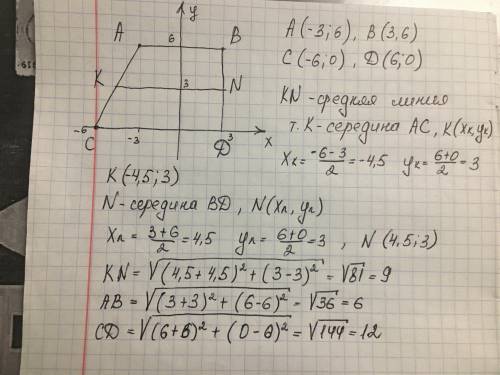 y
A 6 B
A(-3;6), B(3,6)
C(-6;0), D(6;0)
K 3 N
KN-средняя линия
т. K-середина AC, K(xк,yк)
-6 -3 3 x
C D
xк = (-6-3)/2 = -4,5 yк = (6+0)/2 = 3
K(-4,5;3)
N-середина BD, N(xn, yn)
xn = (3+6)/2 = 4,5 yn = (6+0)/2 = 3, N(4,5;3)
KN = √((4,5+4,5)² + (3-3)²) = √81 = 9
AB = √((3+3)² + (6-6)²) = √36 = 6
CD = √((6+6)² + (0-0)²) = √144 = 12